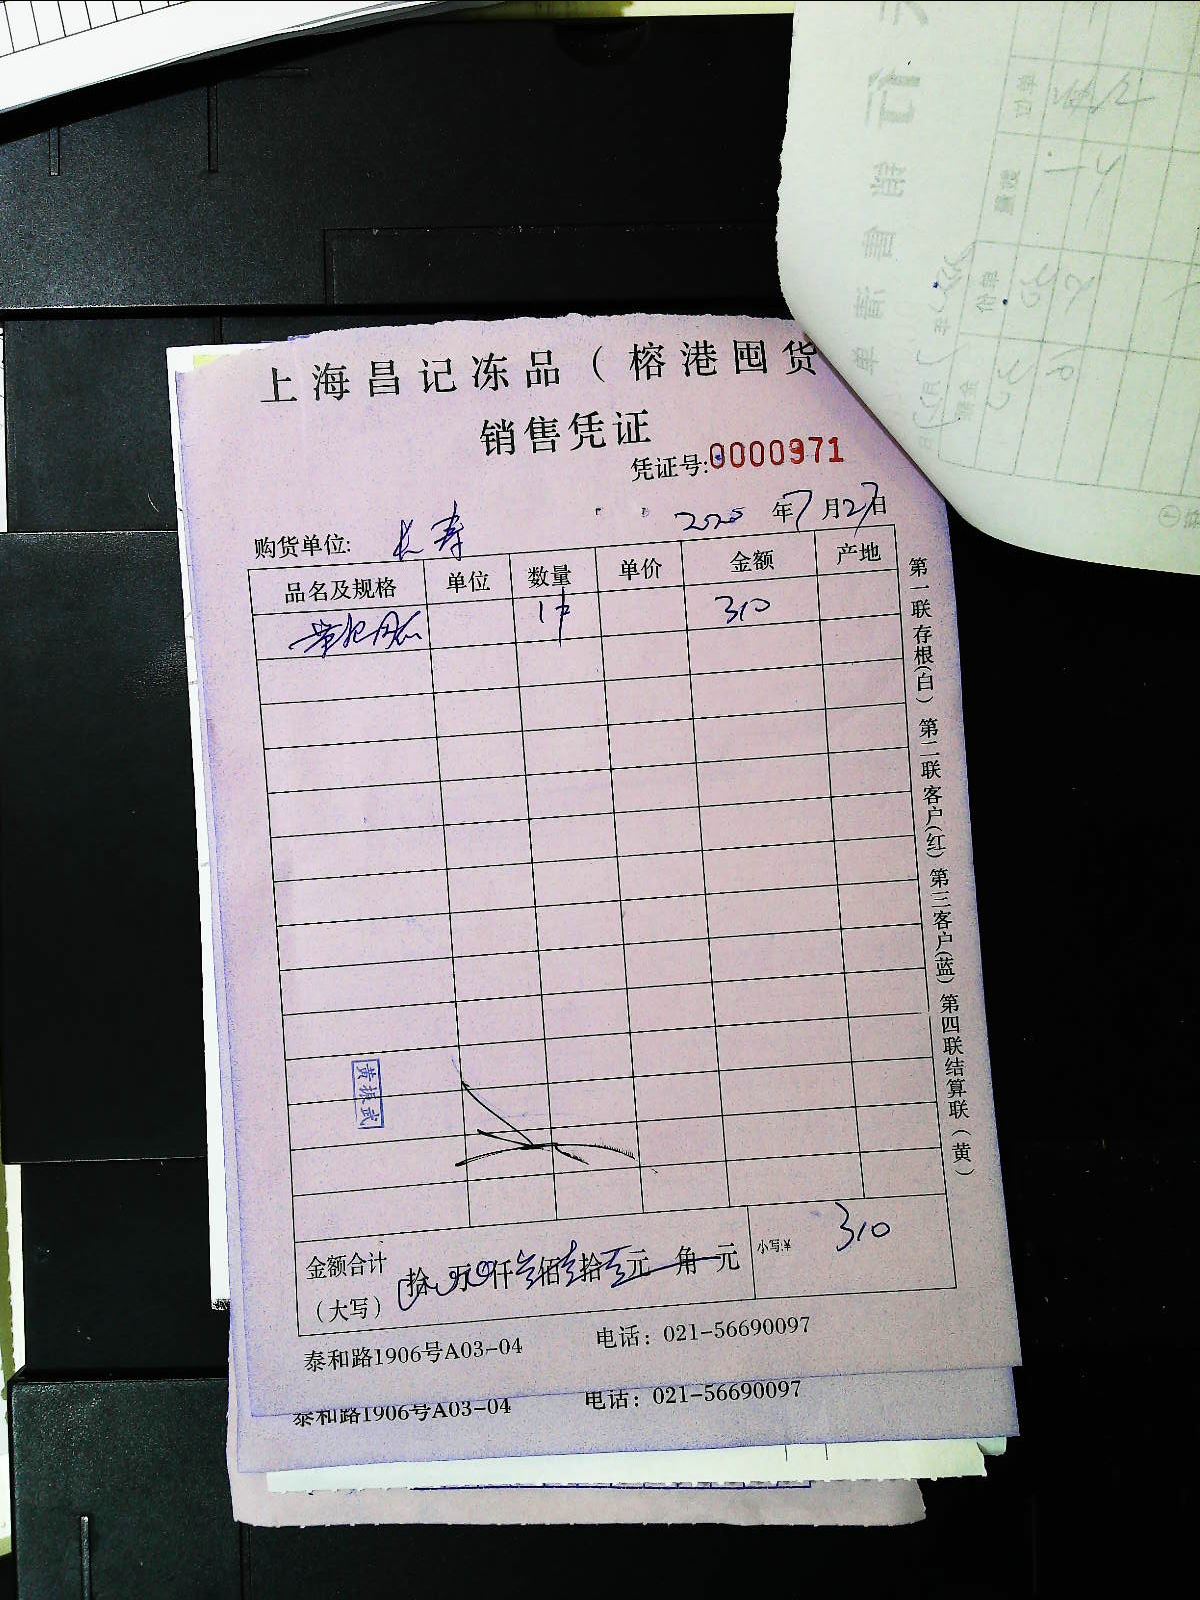 上海昌记冻品（榕港囤货
销售凭证
凭证号:0000971
购货单位: 长寿 2020年7月27日
品名及规格 单位 数量 单价 金额 产地
1件 310
第一联存根(白) 第二联客户(红) 第三客户(蓝) 第四联结算联(黄)
黄振武
金额合计 拾 万 仟 佰 拾 元 角 元 小写:¥ 310
（大写）
泰和路1906号A03-04 电话: 021-56690097
泰和路1906号A03-04 电话: 021-56690097